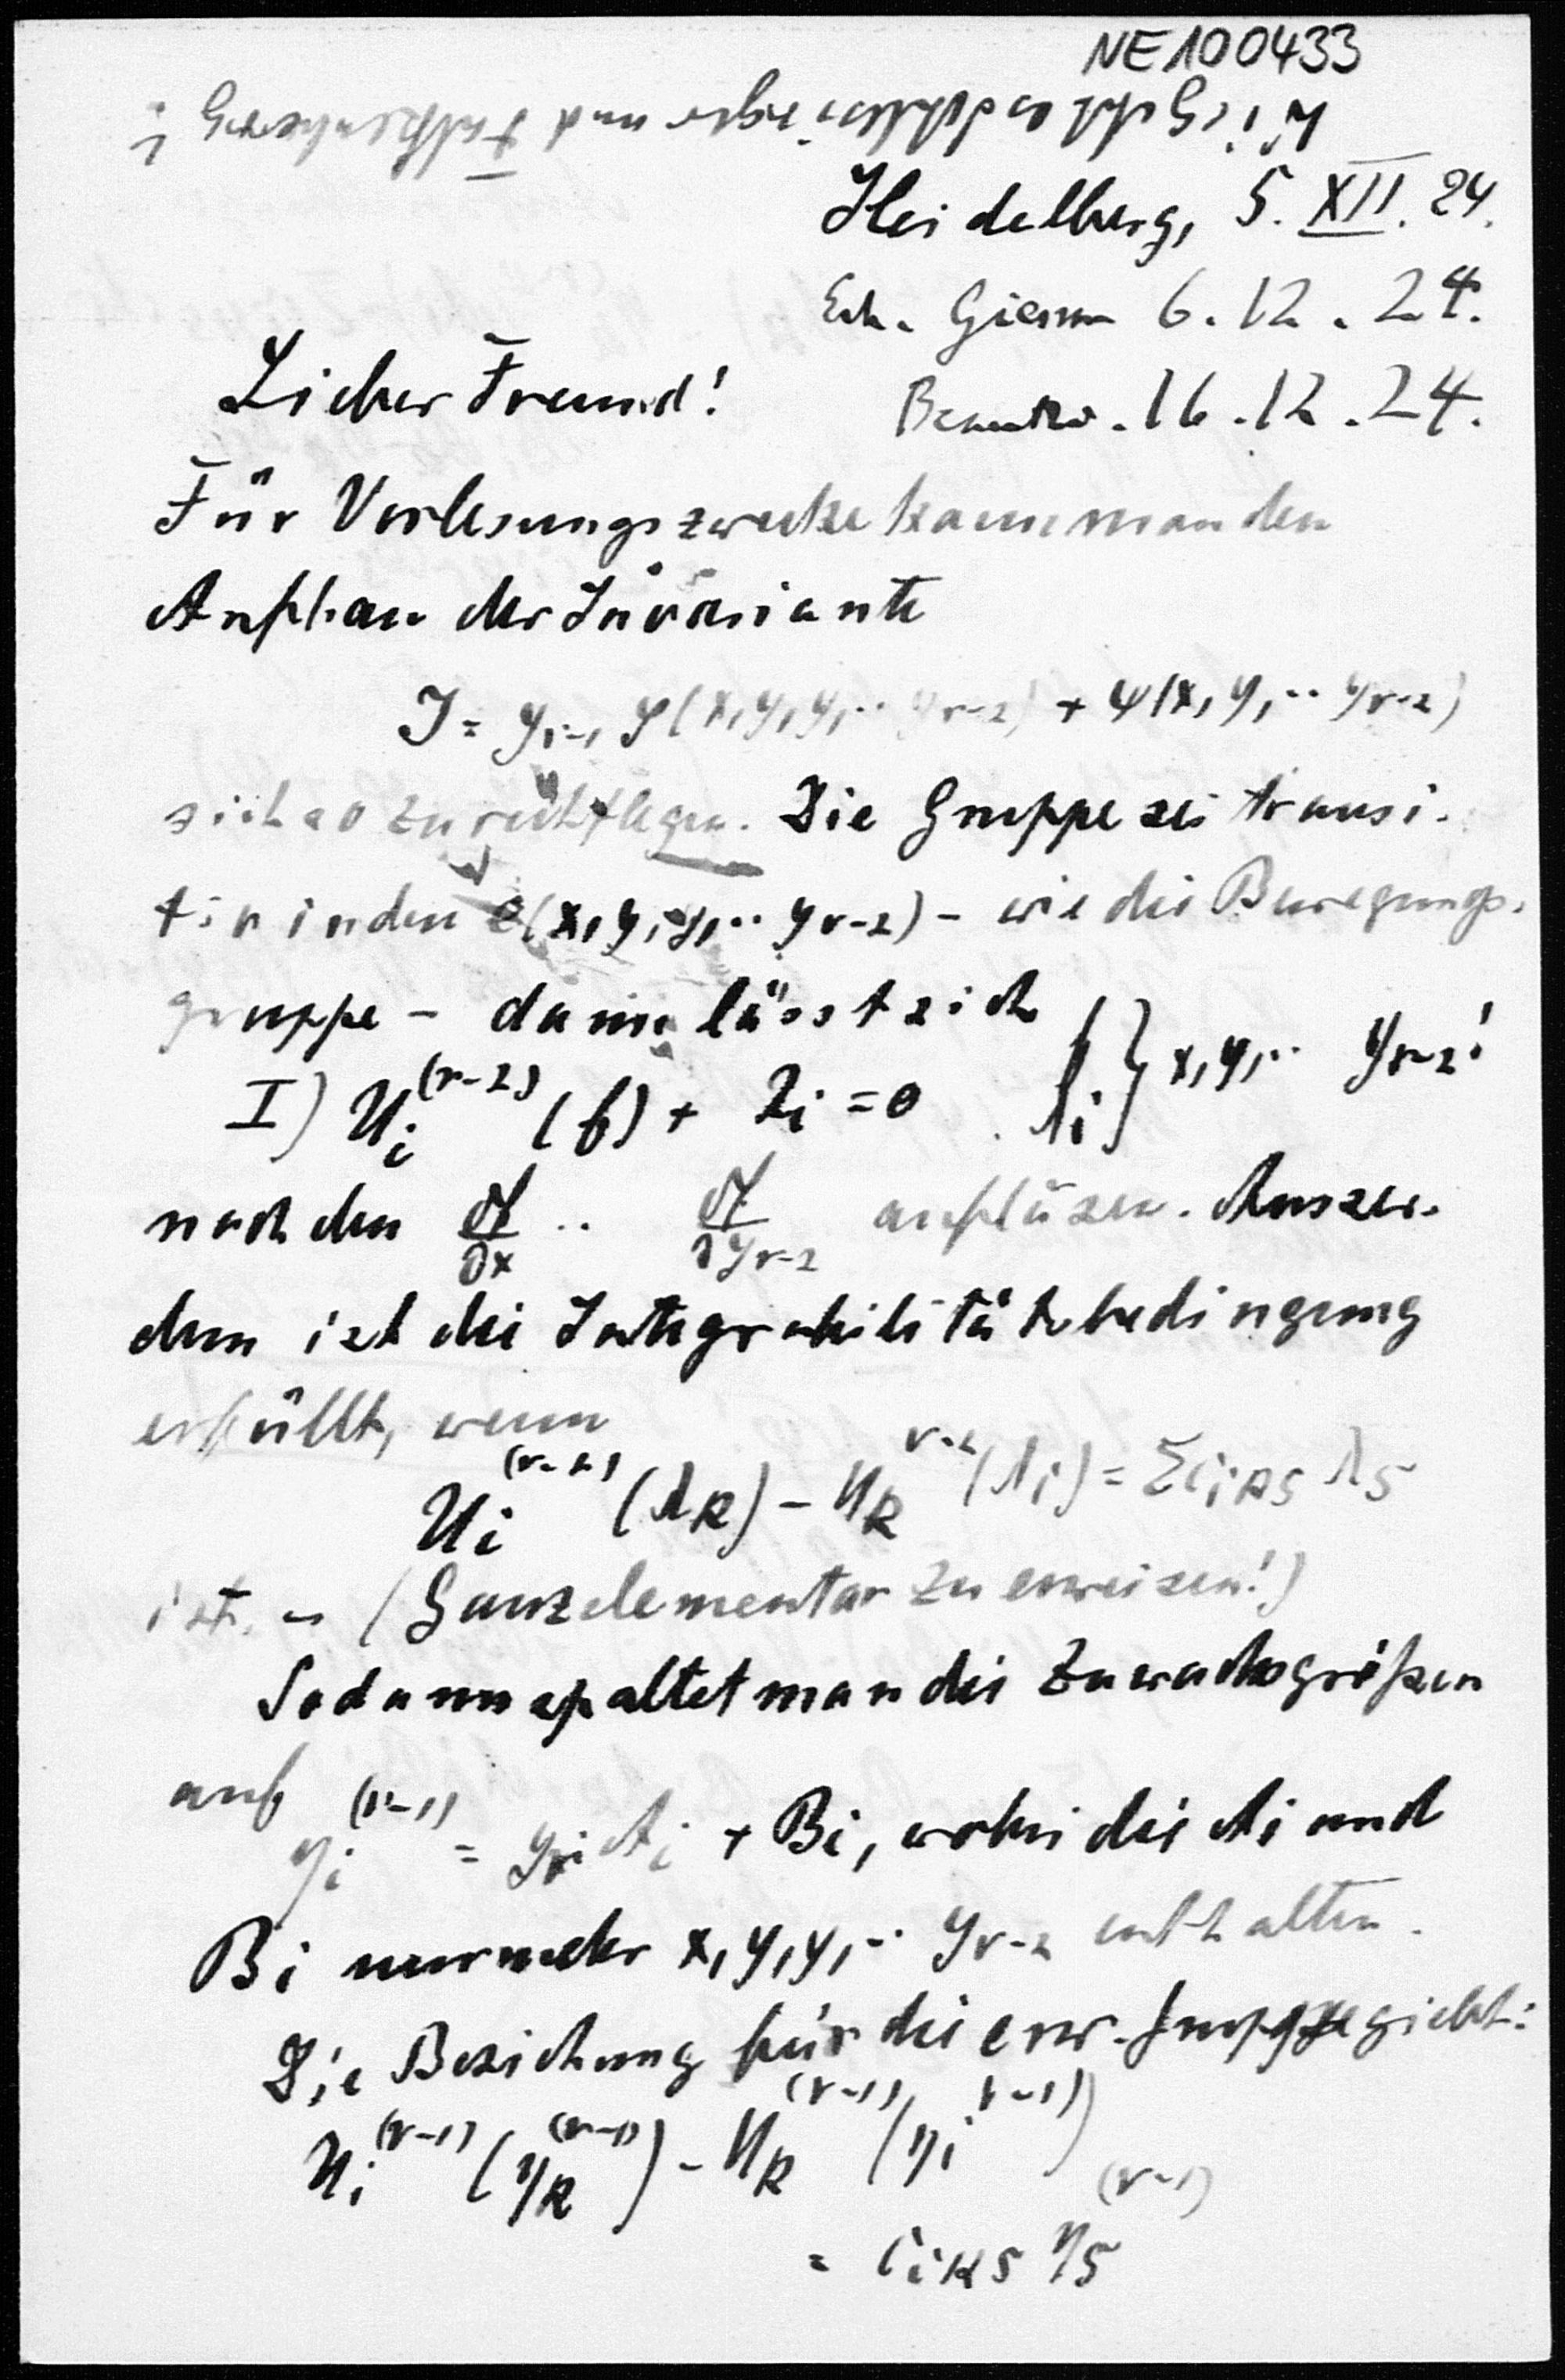 NE100433
Heidelberg, 5. XII. 24.
Erh. Giessen 6.12.24.
Lieber Freund!
Beantw. 16.12.24.
Für Vorlesungszwecke kann man den
Aufbau der Invariante
J = y_{r-1} φ(x, y, y_1 ·· y_{r-2}) + ψ(x, y, ·· y_{r-2})
sich so zurechtlegen. Die Gruppe sei transi-
tiv in den (x, y, y_1 ·· y_{r-2}) – wie die Bewegungs-
gruppe – dann lässt sich
I) U_i^{(r-2)} (f) + λ_i = 0 f λ_i } x, y, ·· y_{r-2}!
nach den ∂f/∂x ·· ∂f/∂y_{r-2} auflösen. Ausser-
dem ist die Integrabilitätsbedingung
erfüllt, wenn
U_i^{(r-2)} (λ_k) – U_k^{r-2} (λ_i) = Σ c_{iks} λ_s
ist. – (Ganz elementar zu erweisen!)
Sodann spaltet man die Zuwachsgrößen
auf
η_i^{(r-1)} = y_{r-1} A_i + B_i, wobei die A_i und
B_i nur mehr x, y, y_1 ·· y_{r-2} enthalten.
Die Beziehung für die erw. Gruppe giebt:
U_i^{(r-1)} (η_k^{(r-1)}) – U_k^{(r-1)} (η_i^{(r-1)})
= c_{iks} η_s^{(r-1)}